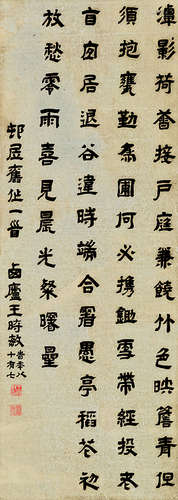 潭影荷薌接戶庭兼饒竹色映簷青但
須抱甕勤為圃何必攜鋤更帶經投老
自宜居退谷違時端合署愚亭稻花初
放愁零雨喜見晨光粲曙星
邨居舊作一首 西廬王時敏
旹年八
十有七